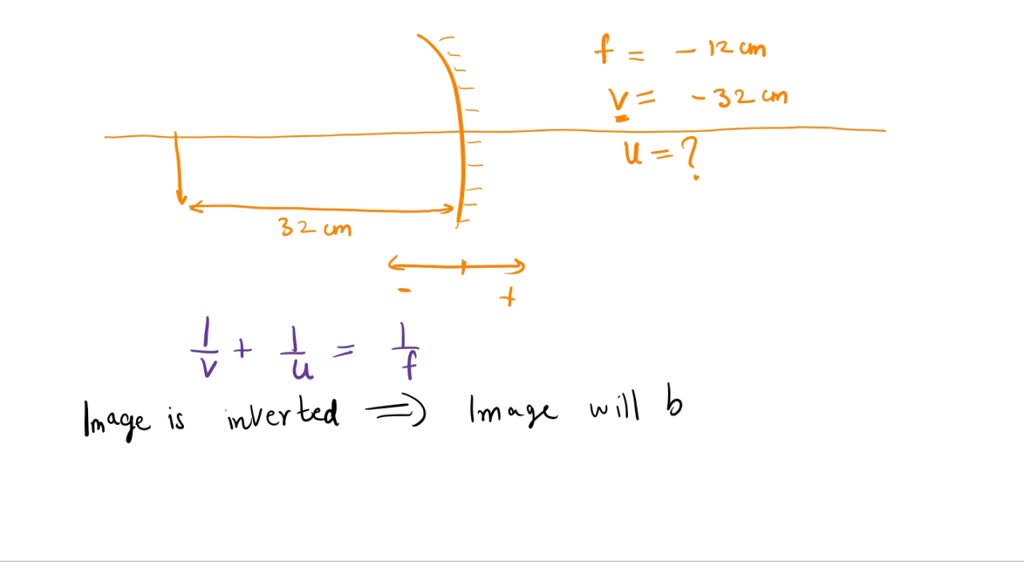 f = - 12 cm
v = - 32 cm
u = ?
32 cm
- +
1/v + 1/u = 1/f
Image is inverted ⇒ Image will b